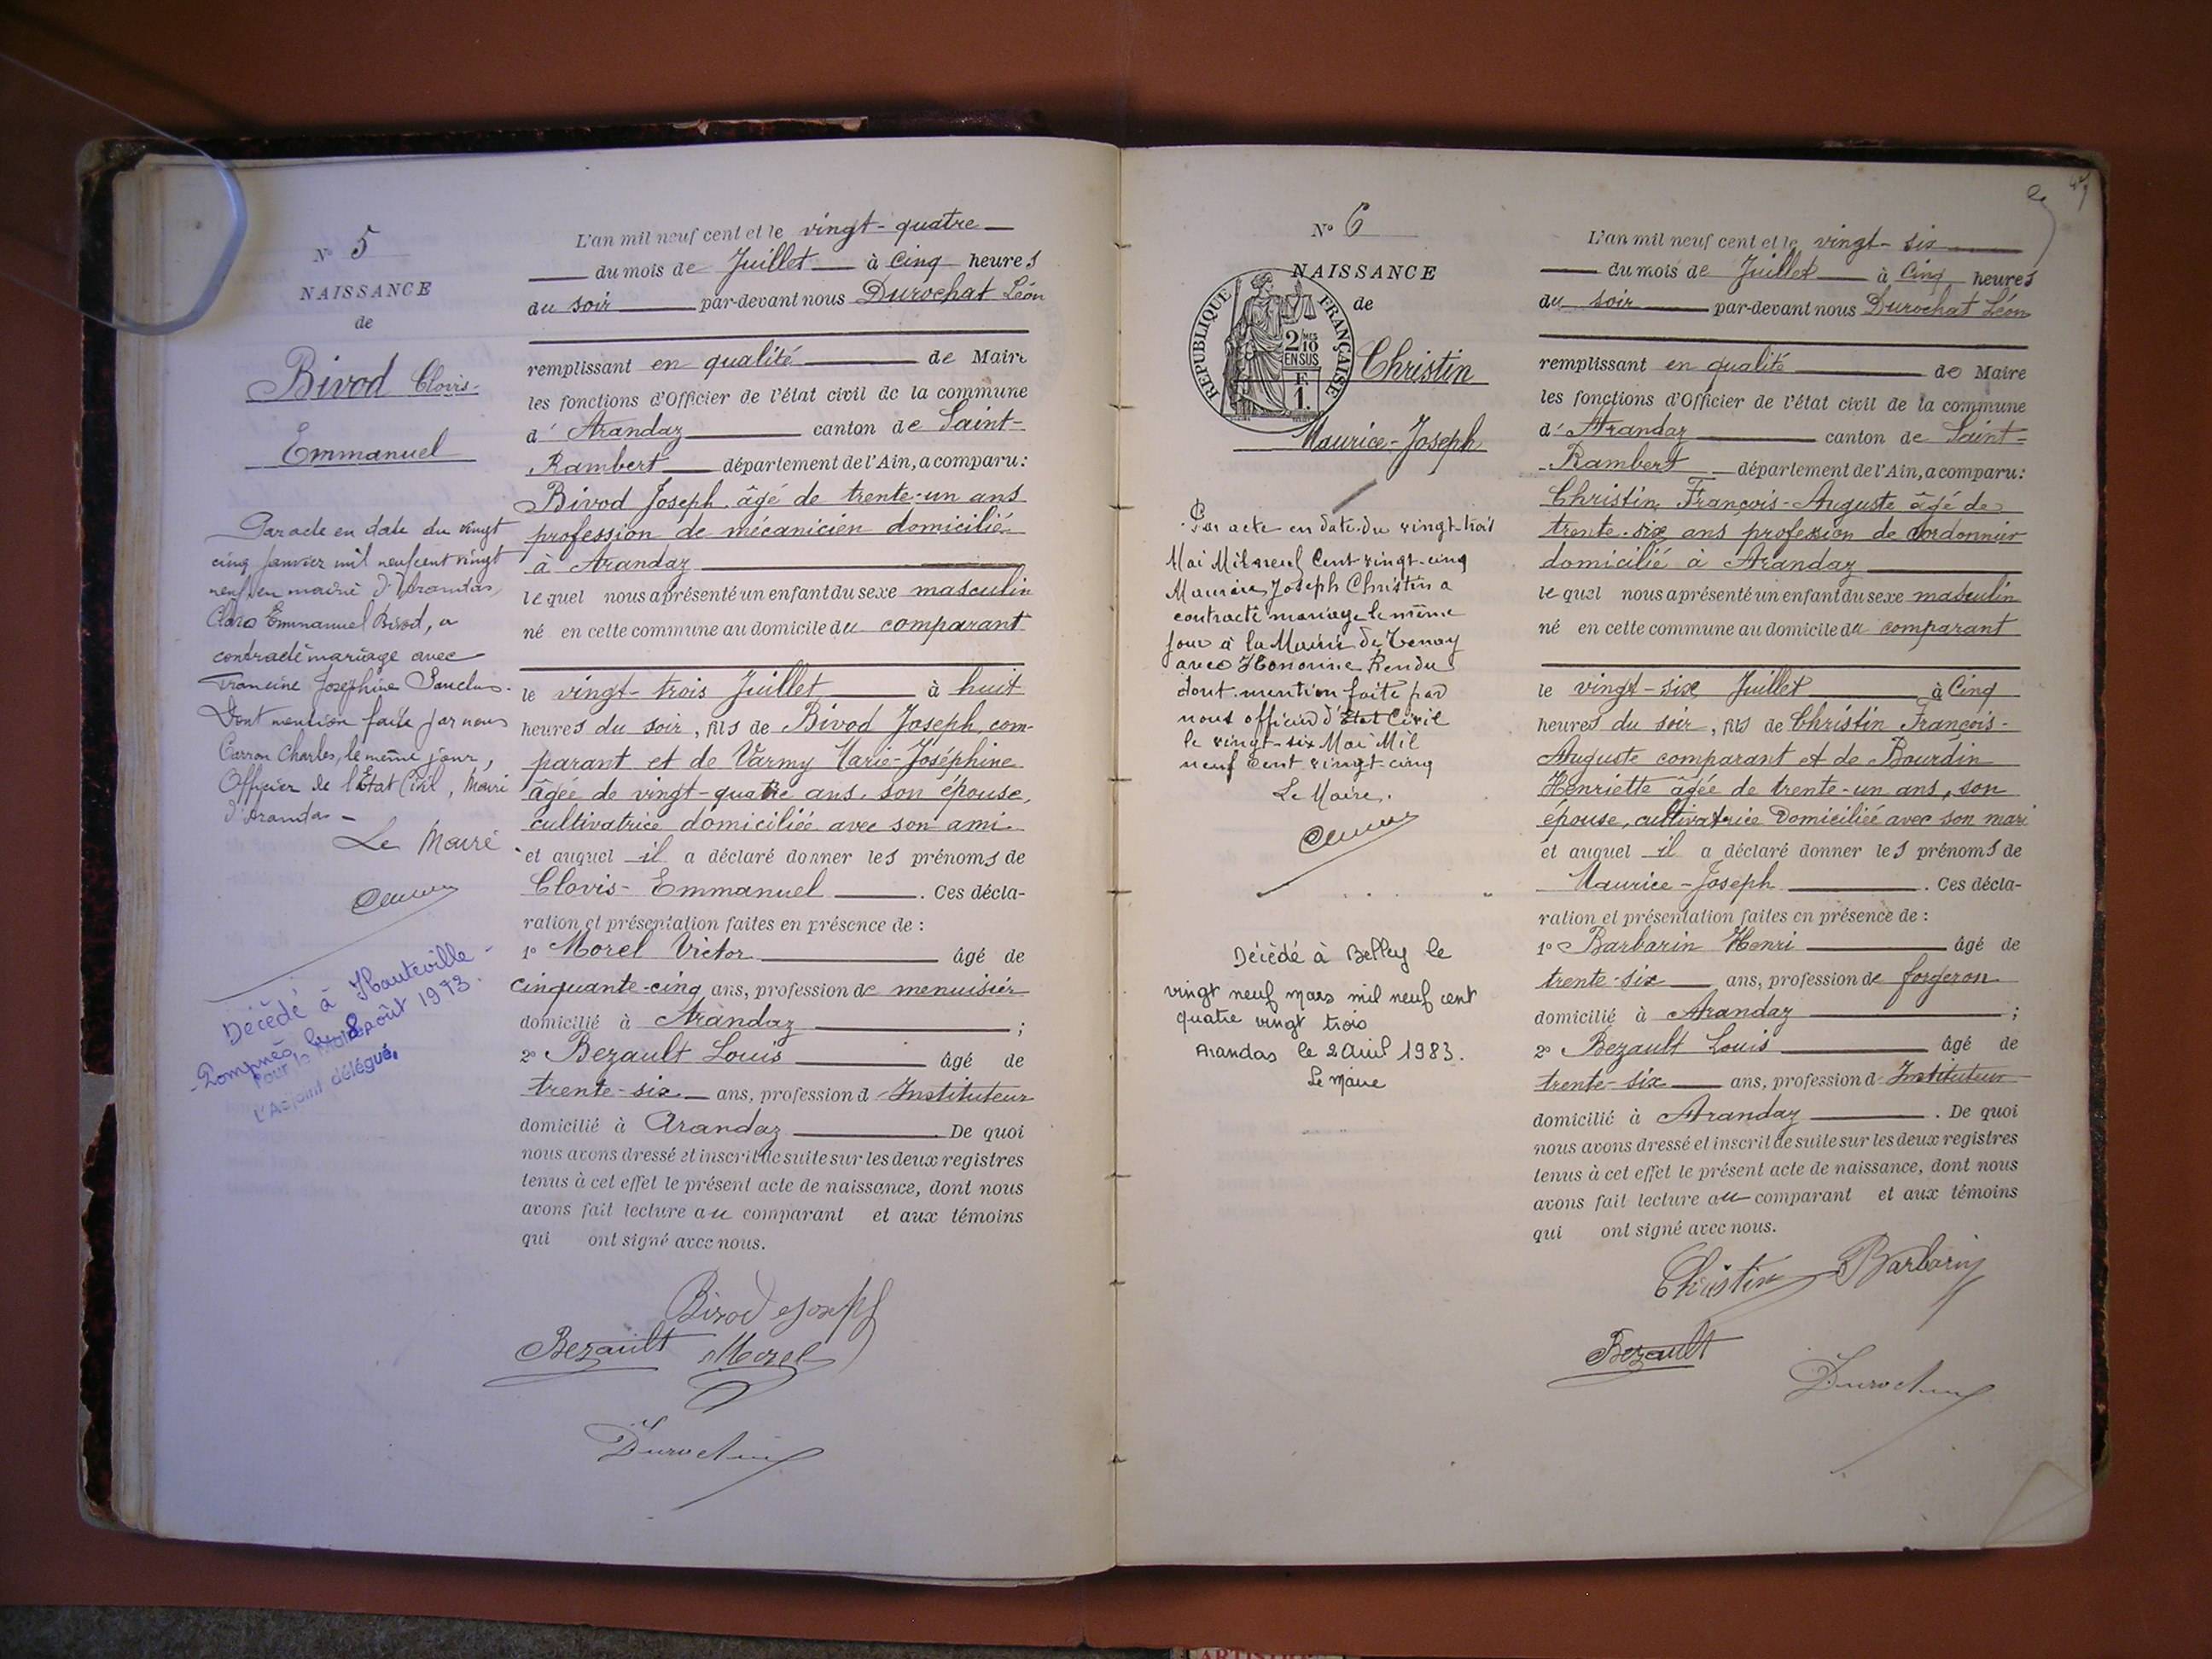 N° 5
NAISSANCE
de
Bivod Clovis-
Emmanuel
Par acte en date du vingt
cinq Janvier mil neuf cent vingt
neuf en mairie d'Arandas,
Clovis Emmanuel Bivod, a
contracté mariage avec
Francine Joséphine
Dont mention faite par nous
Carron Charles, le même jour,
Officier de l'Etat Civil, Maire
d'Arandas -
Le Maire
Décédé à Hauteville -
Lompnes le 8 août 1973.
Pour le Maire
L'Adjoint délégué,
L'an mil neuf cent et le vingt-quatre
du mois de Juillet à Cinq heures
du soir par-devant nous Durochat Léon
remplissant en qualité de Maire
les fonctions d'Officier de l'état civil de la commune
d' Arandaz canton de Saint-
Rambert département de l'Ain, a comparu:
Bivod Joseph âgé de trente-un ans
profession de mécanicien domicilié
à Arandaz
lequel nous a présenté un enfant du sexe masculin
né en cette commune au domicile du comparant
le vingt-trois Juillet à huit
heures du soir, fils de Bivod Joseph, com-
parant et de Varmy Marie-Joséphine
âgée de vingt-quatre ans, son épouse,
cultivatrice domiciliée avec son ami
et auquel il a déclaré donner les prénoms de
Clovis-Emmanuel . Ces décla-
ration et présentation faites en présence de :
1° Morel Victor âgé de
cinquante-cinq ans, profession de menuisier
domicilié à Arandaz ;
2° Bezault Louis âgé de
trente-six ans, profession d'Instituteur
domicilié à Arandaz De quoi
nous avons dressé et inscrit de suite sur les deux registres
tenus à cet effet le présent acte de naissance, dont nous
avons fait lecture au comparant et aux témoins
qui ont signé avec nous.
Bivod Joseph
Bezault Morel
Durochat
N° 6
NAISSANCE
de
REPUBLIQUE FRANÇAISE
2/10 MES
EN SUS
F.
1.
Christin
Maurice-Joseph
Par acte en date du vingt-trois
Mai Mil neuf Cent vingt-cinq
Maurice Joseph Christin a
contracté mariage le même
jour à la Mairie de Tenay
avec Honorine Rendu
dont mention faite par
nous officier d'Etat Civil
le vingt-six Mai Mil
neuf Cent vingt-cinq
Le Maire.
Décédé à Belley le
vingt neuf mars mil neuf cent
quatre vingt trois
Arandas le 2 Avril 1983.
Le Maire
L'an mil neuf cent et le vingt-six
du mois de Juillet à Cinq heures
du soir par-devant nous Durochat Léon
remplissant en qualité de Maire
les fonctions d'Officier de l'état civil de la commune
d' Arandaz canton de Saint-
-Rambert département de l'Ain, a comparu:
Christin François-Auguste âgé de
trente-six ans profession de Cordonnier
domicilié à Arandaz
lequel nous a présenté un enfant du sexe masculin
né en cette commune au domicile du comparant
le vingt-six Juillet à Cinq
heures du soir, fils de Christin François-
Auguste comparant et de Bourdin
Henriette âgée de trente-un ans, son
épouse, cultivatrice Domiciliée avec son mari
et auquel il a déclaré donner les prénoms de
Maurice-Joseph . Ces décla-
ration et présentation faites en présence de :
1° Barbarin Henri âgé de
trente-six ans, profession de forgeron
domicilié à Arandaz ;
2° Bezault Louis âgé de
trente-six ans, profession d'Instituteur
domicilié à Arandaz . De quoi
nous avons dressé et inscrit de suite sur les deux registres
tenus à cet effet le présent acte de naissance, dont nous
avons fait lecture au comparant et aux témoins
qui ont signé avec nous.
Christin Barbarin
Bezault
Durochat